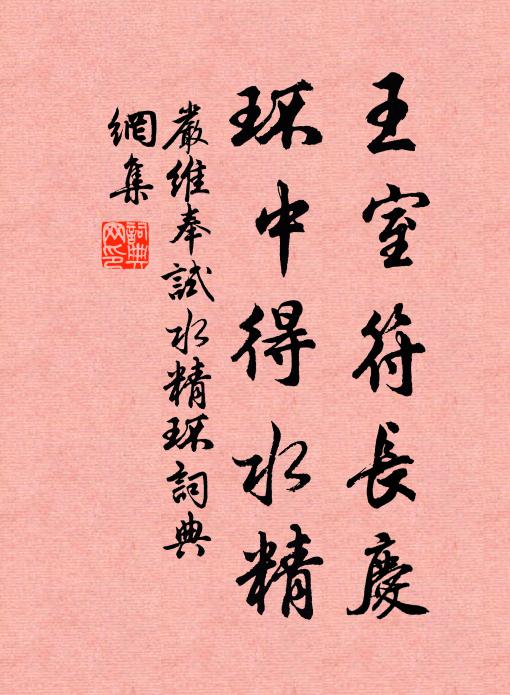 王室符長慶
环中得水精
嚴維奉試水精环詞典
網集
詞典
网印